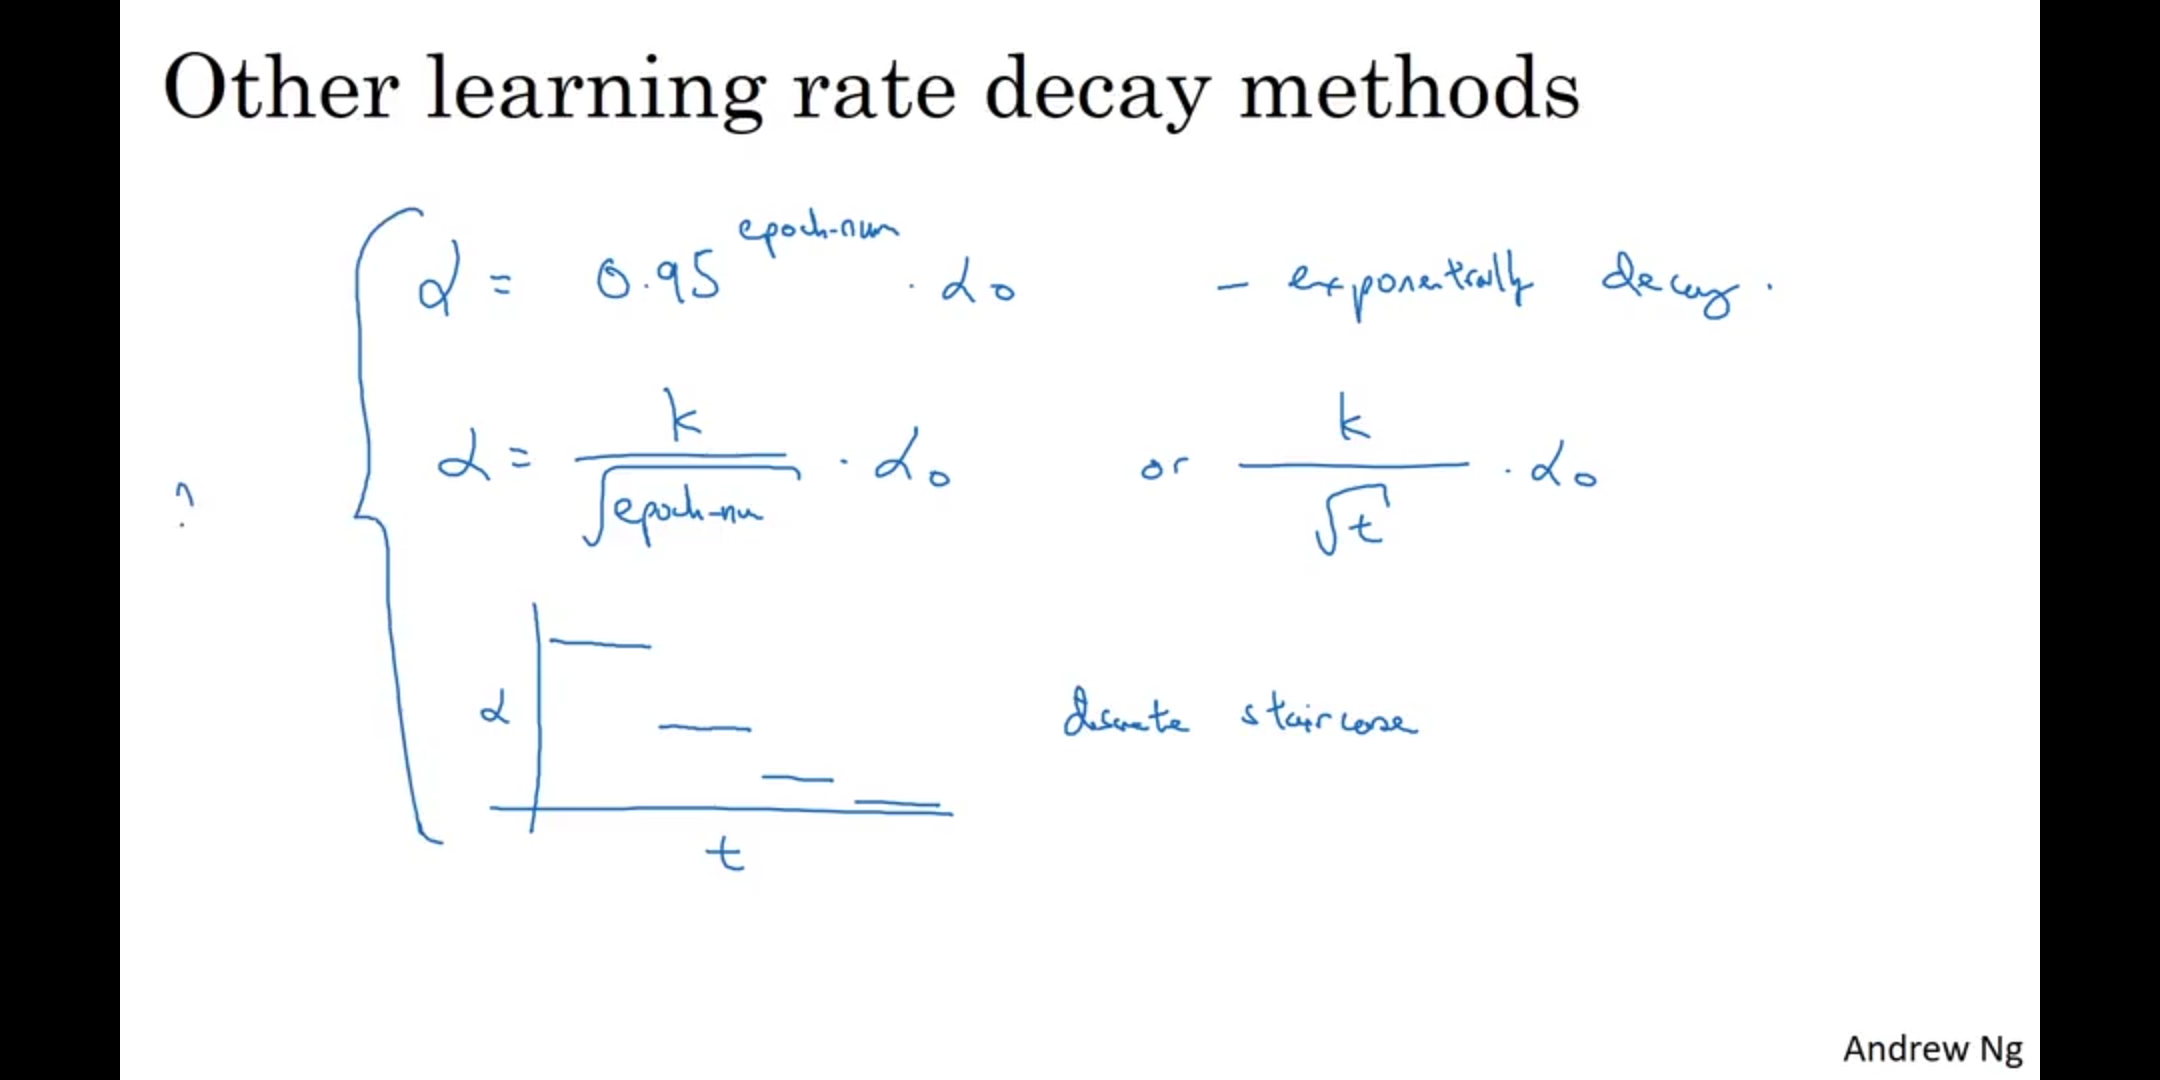 Other learning rate decay methods
α = 0.95^epoch-num · α₀ - exponentially decay.
α = k / √epoch-nu · α₀ or k / √t · α₀
?
α
discrete staircase
t
Andrew Ng